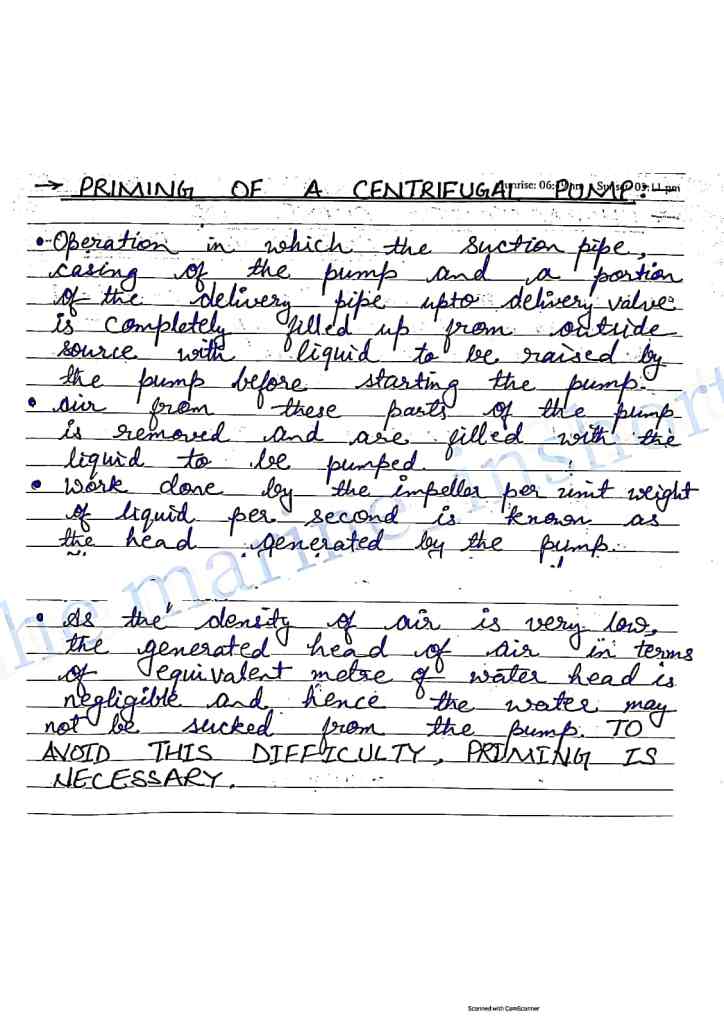 → PRIMING OF A CENTRIFUGAL PUMP:
• Operation in which the suction pipe,
casing of the pump and a portion
of the delivery pipe upto delivery valve
is completely filled up from outside
source with liquid to be raised by
the pump before starting the pump.
• Air from these parts of the pump
is removed and are filled with the
liquid to be pumped.
• Work done by the impeller per unit weight
of liquid per second is known as
the head generated by the pump.
• As the density of air is very low,
the generated head of air in terms
of equivalent metre of water head is
negligible and hence the water may
not be sucked from the pump. TO
AVOID THIS DIFFICULTY, PRIMING IS
NECESSARY.
the marine inshort
Scanned with CamScanner